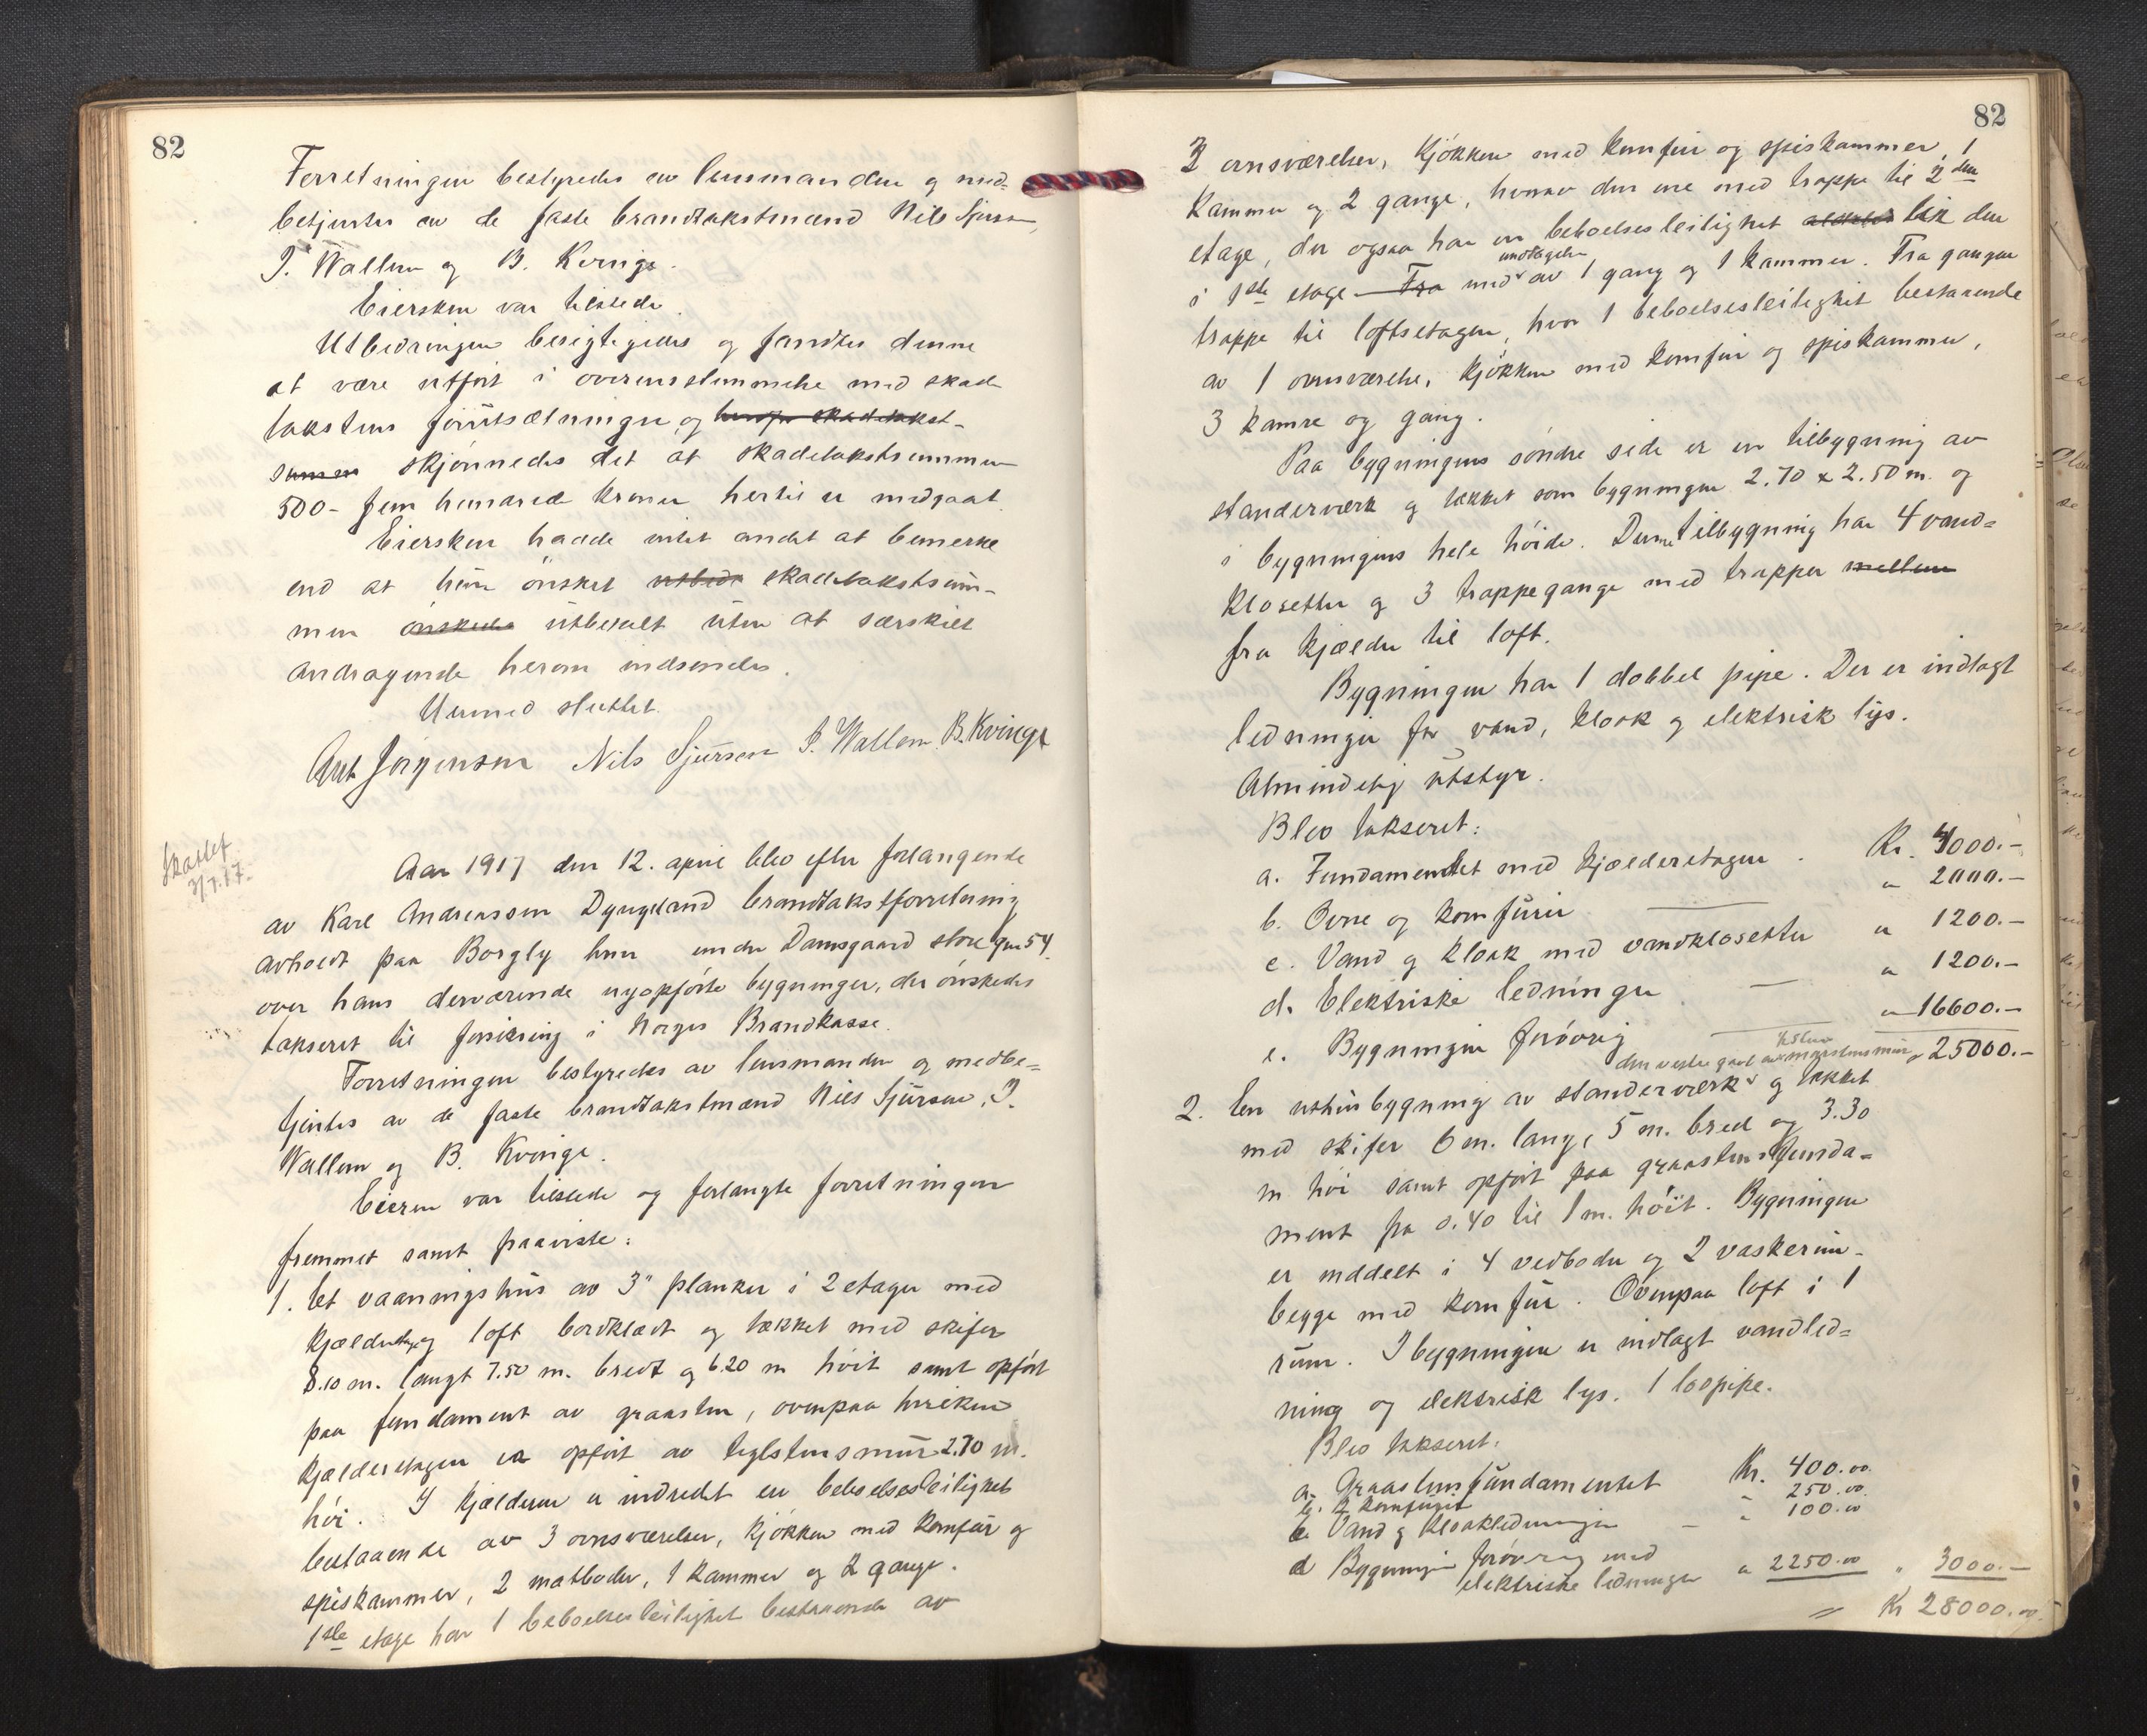 82
Forretningen bestyredes av lensmanden og med-
betjentes av de faste brandtakstmænd Nils Sjursen,
I. Wallem og B. Kvinge.
Eiersken var tilstede.
Utbedringen besigtigedes og fandtes denne
at være utført i overensstemmelse med skade
takstens forutsætninger og skadetakst-
summen skjønnedes det at skadetakstsummen
500- fem hundrede kroner hertil er medgaat.
Eiersken hadde intet andet at bemerke
end at hun ønsket utbedt skadetakstsum-
men ønskedes utbetalt uten at særskilt
andragende herom indsendes.
Hermed sluttet.
Ant Jørgensen Nils Sjursen I. Wallem B. Kvinge
Skattet
Aar 1917 den 12. april blev efter forlangende
av Karl Andreassen Dyngeland brandtakstforretning
avholdt paa Borgly bnr under Damsgaard store gnr 54
over hans derværende nyopførte bygninger, der ønskedes
takseret til forsikring i Norges Brandkasse.
Forretningen bestyredes av lensmanden og medbe=
tjentes av de faste brandtakstmænd Nils Sjursen, I.
Wallem og B. Kvinge.
Eieren var tilstede og forlangte forretningen
fremmet samt paaviste:
1. Et vaaningshus av 3" planker i 2 etager med
kjælderetage og loft bordklædt og tækket med skifer
8.10 m. langt 7.50 m. bredt og 6.20 m høit samt opført
paa fundament av graasten, ovenpaa hvilken
kjælderetagen er opført av teglstensmur 2.70 m.
høi. I kjælderen er indredet en beboelsesleilighet
bestaaende av 3 ovnsværelser, kjøkken med komfur og
spiskammer, 2 matboder, 1 kammer og 2 gange.
1ste etage har 1 beboelsesleilighet bestaaende av
82
3 ovnsværelser, kjøkken med komfur og spiskammer, 1
kammer og 2 gange, hvorav den ene med trappe til 2den
etage, der ogsaa har en beboelsesleilighet lik den
undtagelse
i 1ste etage Fra med av 1 gang og 1 kammer. Fra gangen
trappe til loftsetagen, hvor 1 beboelsesleilighet bestaaende
av 1 ovnsværelse, kjøkken med komfur og spiskammer,
3 kamre og gang.
Paa bygningens søndre side er en tilbygning av
standerværk og tækket som bygningen 2.70 x 2.50 m. og
i bygningens hele høide. Denne tilbygning har 4 vand=
klosetter og 3 trappegange med trapper mellem
fra kjælder til loft.
Bygningen har 1 dobbel pipe. Der er indlagt
ledninger for vand, kloak og elektrisk lys.
Almindelig utstyr.
Blev takseret:
a. Fundamentet med kjælderetagen . Kr. 4000.-
b. Ovne og komfurer " 2000.-
c. Vand og kloak med vandklosetter " 1200.-
d. Elektriske ledninger " 1200.-
e. Bygningen forøvrig " 16600.-
" 25000.-
den vestre gavl av murstensmur
2. En uthusbygning av standerværk og tækket
med skifer 6 m. lang, 5 m. bred og 3.30
m høi samt opført paa graastensfunda=
ment fra 0.40 til 1 m. høit. Bygningen
er inddelt i 4 vedboder og 2 vaskerum-
begge med komfur. Ovenpaa loft i 1
rum. I bygningen er indlagt vandled=
ning og elektrisk lys. 1 løspipe.
Blev takseret:
a. Graastensfundamentet Kr. 400.00
b. 2 komfurer 250.00
c. Vand og kloakledninger - " 100.00
d Bygningen forøvrig med
elektriske ledninger " 2250.00 " 3000.-
Kr 28000.00